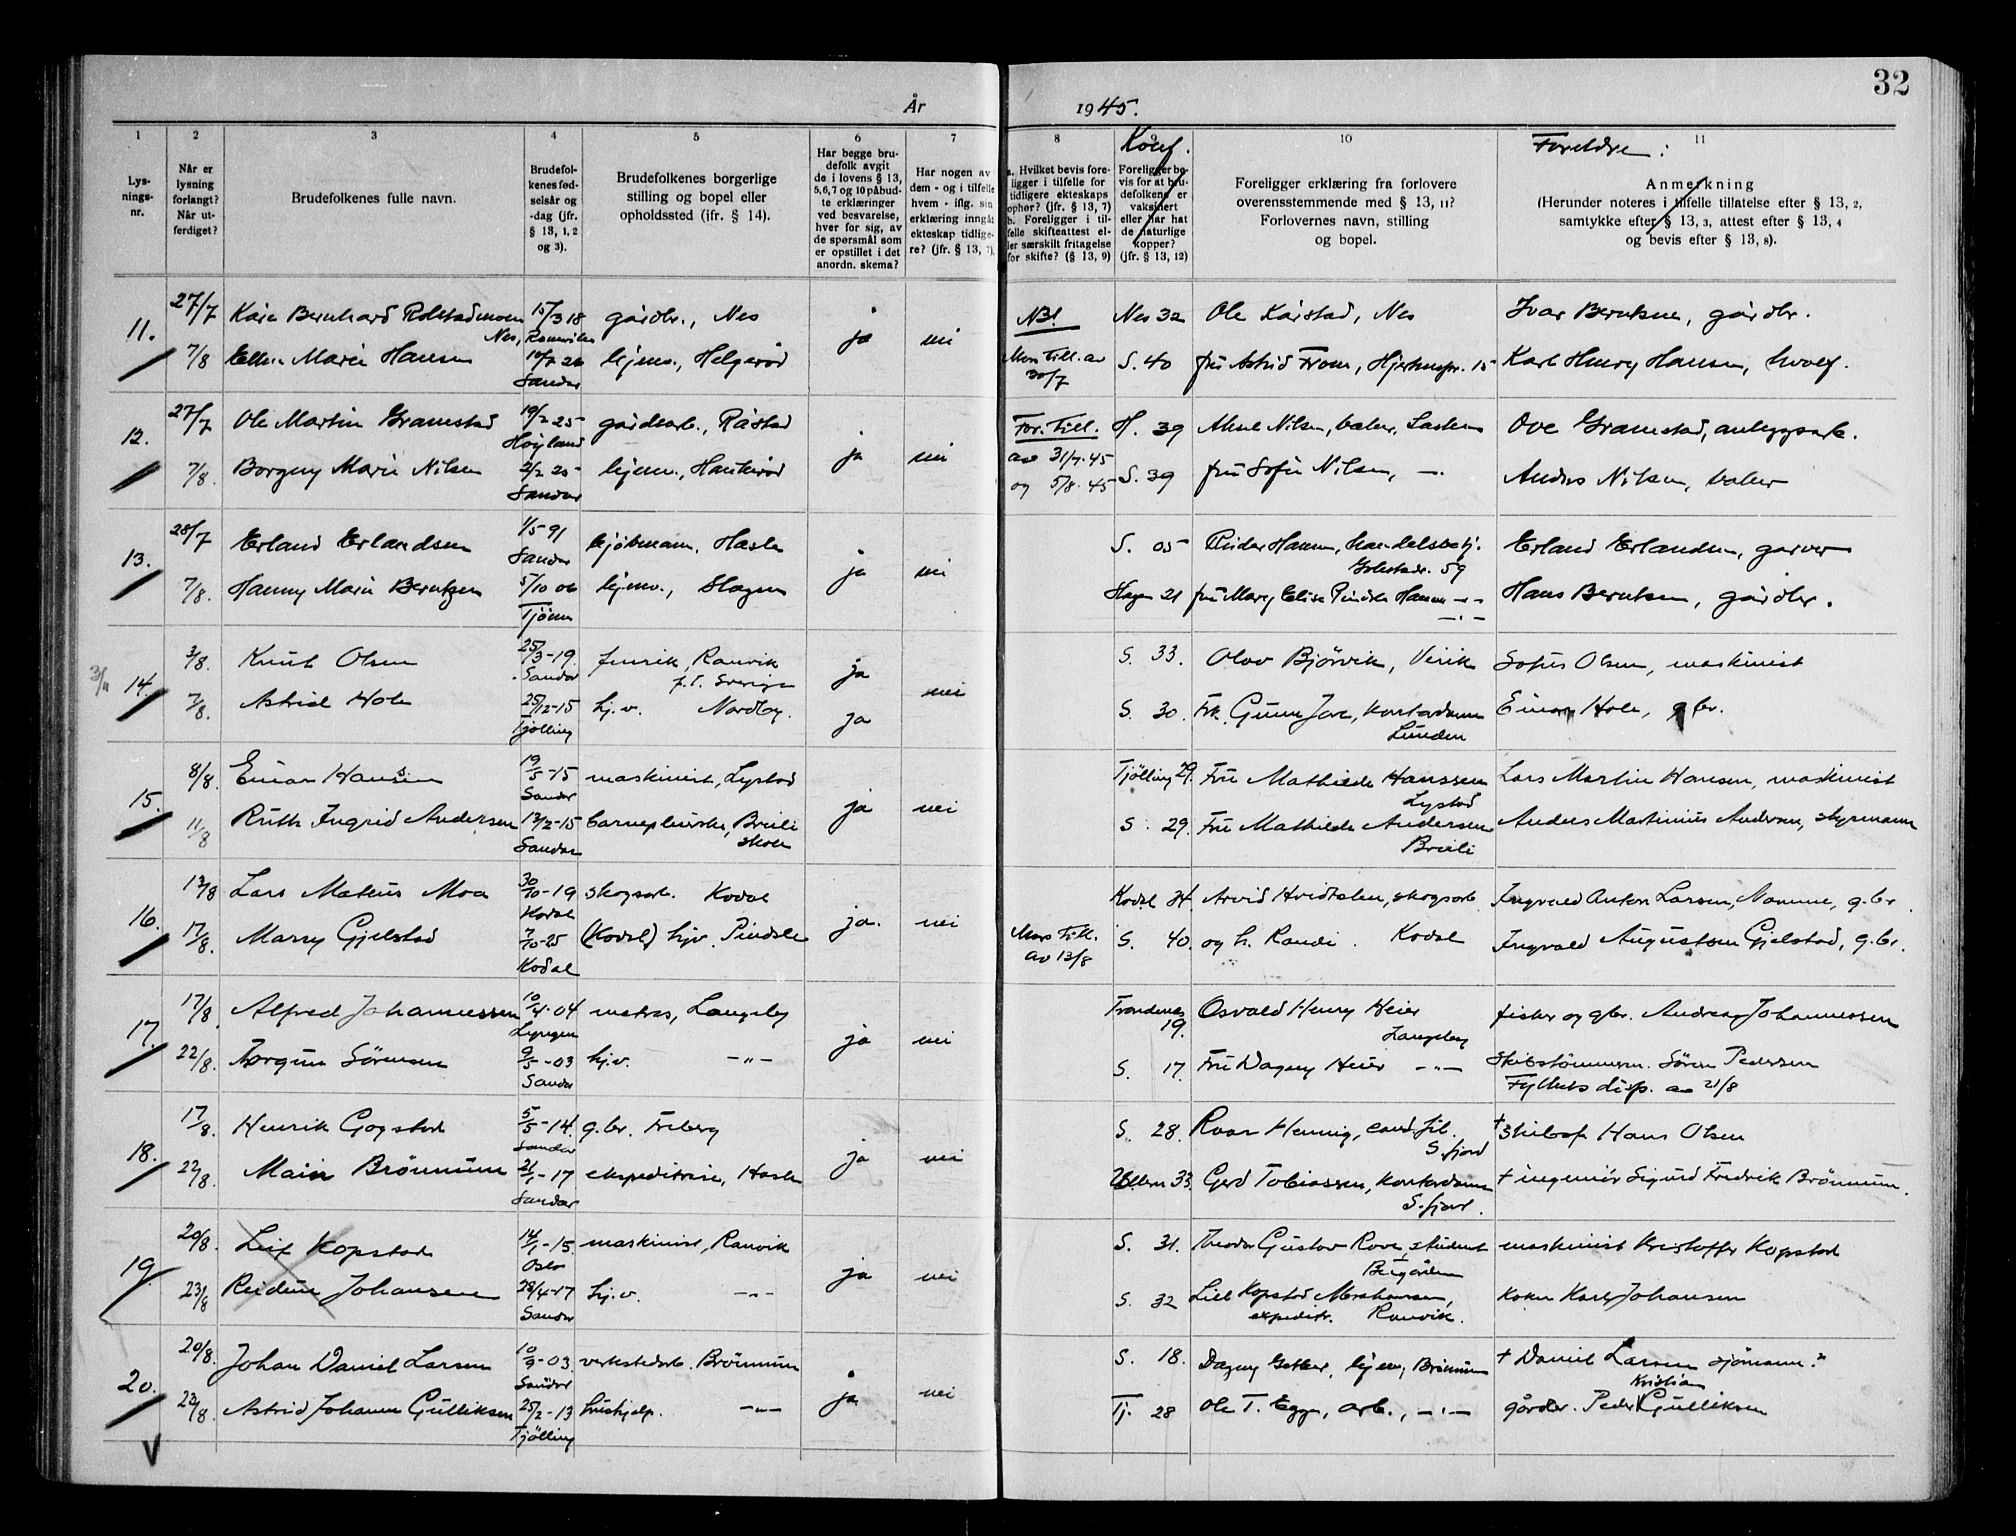 32
År 1945.
1 2 3 4 5 6 7 8 9 10 11
Lys-
nings-
nr.
Når er
lysning
forlangt?
Når ut-
ferdiget?
Brudefolkenes fulle navn.
Brudefol-
kenes fød-
selsår og
-dag (jfr.
§ 13, 1, 2
og 3).
Brudefolkenes borgerlige
stilling og bopel eller
opholdssted (jfr. § 14).
Har begge bru-
defolk avgit
de i lovens § 13,
5,6,7 og 10 påbud-
te erklæringer
ved besvarelse,
hver for sig, av
de spørsmål som
er opstillet i det
anordn. skema?
Har nogen av
dem - og i tilfelle
hvem - iflg. sin
erklæring inngått
ekteskap tidlige-
re? (jfr. § 13, 7).
a. Hvilket bevis fore-
ligger i tilfelle for
tidligere ekteskaps
ophør? (jfr. § 13, 7)
b. Foreligger i til-
felle skifteattest el-
ler særskilt fritagelse
for skifte? (§ 13, 9)
Konf.
Foreligger be-
vis for at bru-
defolkene er
vaksinert
eller har hat
de naturlige
kopper?
(jfr. § 13, 12)
Foreligger erklæring fra forlovere
overensstemmende med § 13, 11?
Forlovernes navn, stilling
og bopel.
Foreldre:
Anmerkning
(Herunder noteres i tilfelle tillatelse efter § 13, 2,
samtykke efter § 13, 3, attest efter § 13, 4
og bevis efter § 13, 8).
11. 27/7 Kåre Bernhard Rolstadmoen 15/3 18 gårdbr., Nes ja nei NB! Nes 32 Ole Kårstad, Nes Ivar Berntsen, gårdbr.
Nes, Romerike
7/8 Ellen Marie Hansen 26 hjemv., Helgerød Mors till. av S. 40 fru Astrid From, 15 Karl Henry Hansen,
Sandar 30/7
12. 27/7 Ole Martin Gramstad 19/2 25 gårdsarb., Råstad ja nei For. till. H. 39 Aksel Nilsen, baker, Ove Gramstad, anleggsarb.
Høyland av 31/7.45
7/8. Borgny Marie Nilsen 2/2 25 hjemv., Haukerød og 5/8.45 S. 39 fru Sofie Nilsen, -"- Anders Nilsen, baker
Sandar
13. 28/7 Erland Erlandsen 1/5 91 kjøbmann, Hasle ja nei S. 05 Pindsle Hansen, handelsbetj. Erland Erlandsen, garver
Sandar 59
7/8. Hanny Marie Berntzen 5/10 06 hjemv., Slagen 21 fru Mary Elise Pindsle Hansen -"- Hans Berntsen, gårdbr.
Tjøme -"-
3/11 14. 3/8. Knut Olsen 25/3-19. fenrik, Ranvik ja S. 33. Olav Bjørvik, Virik Sofus Olsen, maskinist
Sandar f.t. Sverige nei
7/8. Astrid Hole 25/12-15 hj.v. Nordby. ja S. 30. Frk. Gunn Jare, kontordame Einar Hole, gbr.
Tjølling Lunden
15. 8/8. Einar Hanssen 19/5-15 maskinist, Lystad ja nei Tjølling 29. Fru Mathilde Hanssen Lars Martin Hansen, maskinist
Sandar Lystad
11/8 Ruth Ingrid Andersen 13/2-15 barnepleierske, Breili S. 29. Fru Mathilde Andersen Anders Martinius Andersen, styrmann
Sandar skole Breili
16. 13/8 Lars Mateus Moa 30/10-19 skogsarb. Kodal ja. nei Kodal 34. Arvid Hvidtsten, skogsarb. Ingvald Anton Larsen, Nomme, g.br.
Kodal
17/8. Marry Gjelstad 7/10-25 (Kodal) hjv. Pindsle Mors till. S. 40. og h. Randi. Kodal Ingvald Augustsen Gjelstad, g.br.
Kodal av 13/8
17. 17/8. Alfred Johannessen 10/4-04 matros, Langeby ja nei Trondenes Osvald Henry Heier fisker og gbr. Andreas Johannessen
Lyngen 19. Langeby
22/8. Torgun Sørensen 9/5-03 hj.v. -"- S. 17. Fru Dagny Heier -"- Skibstømmerm. Søren Pedersen
Sandar Fylkets disp. av 21/8
18. 17/8. Henrik Gogstad 5/5-14. g.br. Freberg ja nei S. 28. Roar Hennig, cand. fil. † Hans Olsen
Sandar S.fjord
22/8. Mair Brönnum 21/1-17 ekspeditrise, Hasle Ullern 33. Gerd Tobiassen, kontordame † ingeniør Sigurd Fredrik Brönnum.
Sandar S.fjord.
19. 20/8. Leif Kopstad 14/1-15. maskinist, Ranvik ja nei S. 31. Theodor Gustav Rove, student maskinist Kristoffer Kopstad
Oslo
23/8 Reidun Johansen 28/4-17 hj.v. -"- S. 32 Lill Kopstad Marthinsen, Koker Karl Johansen
Sandar expeditr. Ranvik.
20. 20/8. Johan Daniel Larsen 10/9-03. verkstedarb. Brönnum ja nei S. 18. Dagny hjem, Brönnum † Daniel Larsen sjømann.
Sandar Kristian
23/8. Astrid Johanne Gulliksen 25/2-13 hushjelp. -"- Tj. 28 Ole T. Egge, arb., -"- gårdbr. Peder Gulliksen
Tjølling
V